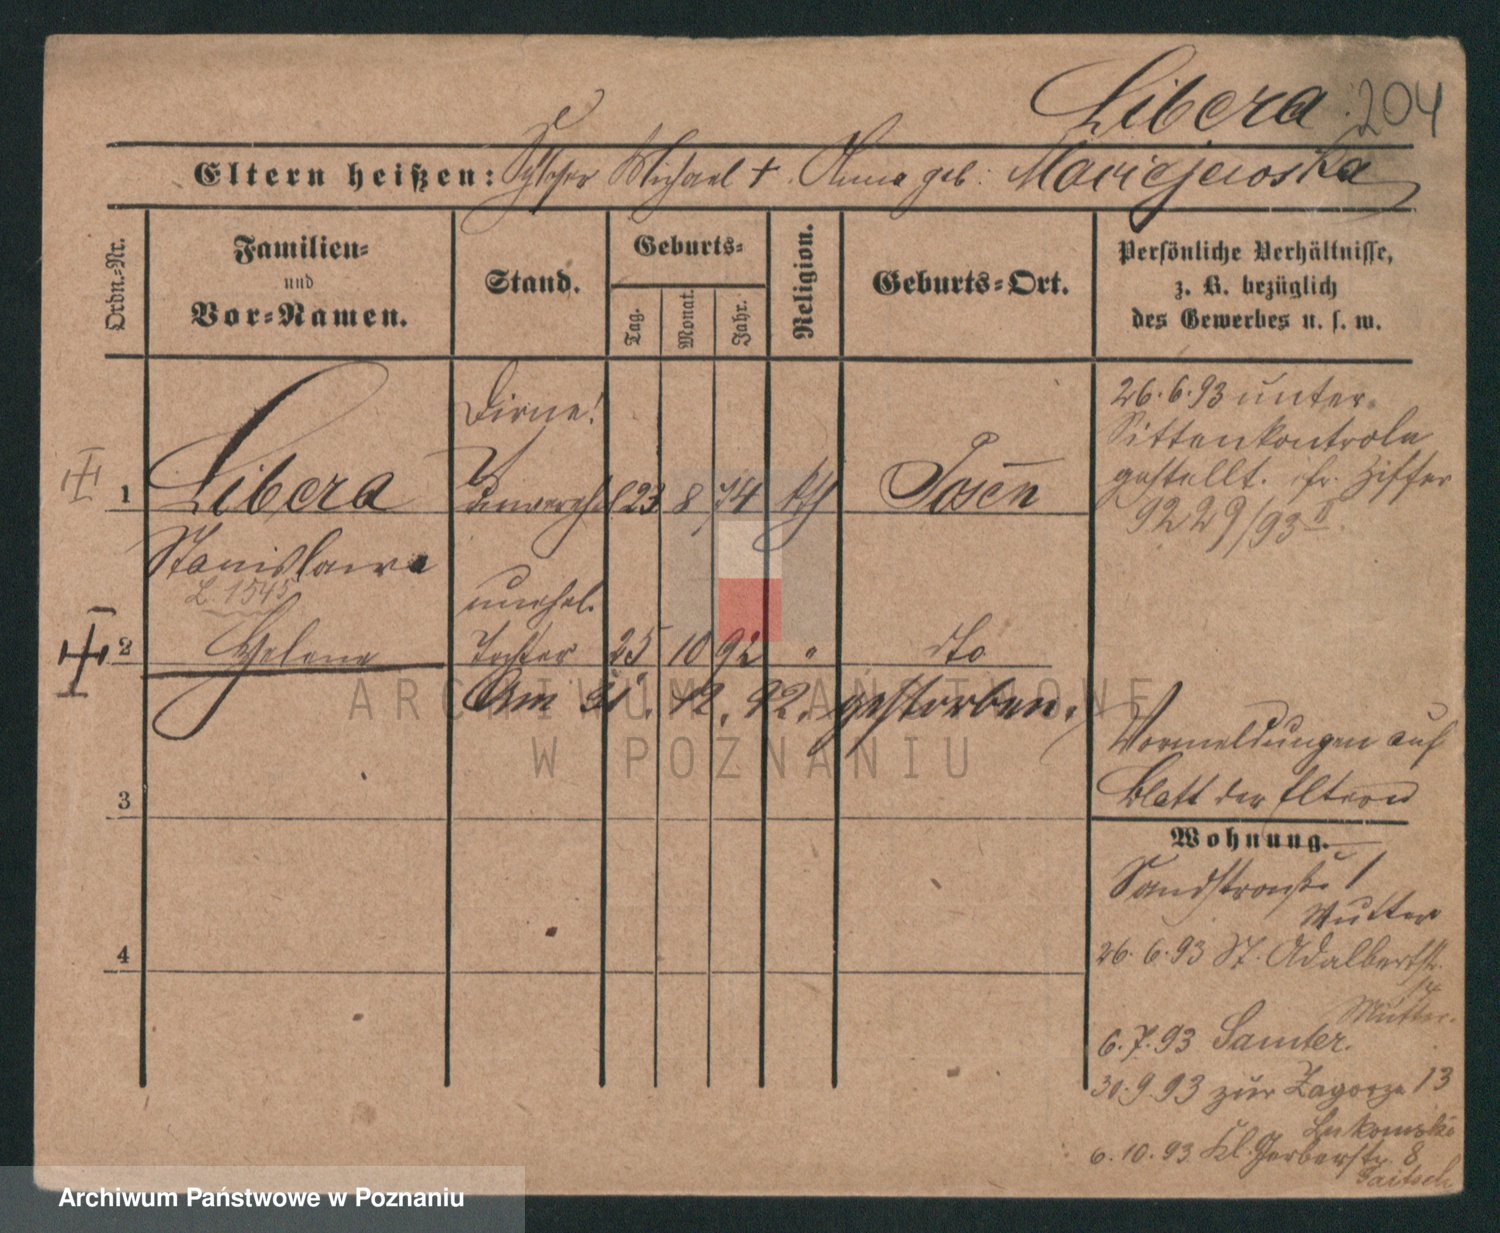 Libera 204
Eltern heißen: Michael † Anna geb: Maciejewska
Ordn.-Nr.
Familien-
und
Vor-Namen.
Stand.
Geburts-
Tag.
Monat.
Jahr.
Religion.
Geburts-Ort.
Persönliche Verhältnisse,
z. B. bezüglich
des Gewerbes u. s. w.
Dirne!
1 Libera unverehel 23 8 74 kth Posen
Stanislawa
L. 1545
26.6.93 unter
Sittenkontrole
gestellt. fr. Ziffer
9229/93 II.
unehel.
2 Helene Tochter 25 10 92 " dto
Am 31. 12. 92. gestorben.
3
4
Vormeldungen auf
Blatt der Eltern
Wohnung.
Sandstraße 1
Mutter
26.6.93 St. Adalbertstr.
Mutter.
6.7.93 Samter.
30.9.93 zur Zagorze 13
6.10.93 Kl. Gerberstr. 8
ARCHIWUM PAŃSTWOWE
W POZNANIU
Archiwum Państwowe w Poznaniu